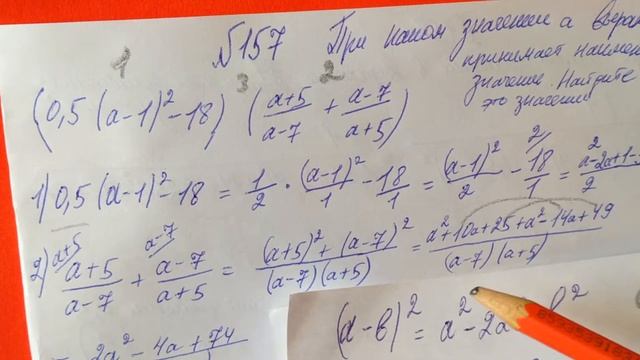 №157 При каком значении а
принимает
значение. Найдите
это значение
1 3 2
(0,5 (a-1)² - 18) ((a+5)/(a-7) + (a-7)/(a+5))
1) 0,5 (a-1)² - 18 = 1/2 · (a-1)²/1 - 18/1 = (a-1)²/2 - 18/1 = a²-2a+1-
2) (a+5)/(a-7) + (a-7)/(a+5) = ((a+5)² + (a-7)²)/((a-7)(a+5)) = (a²+10a+25+a²-14a+49)/((a-7)(a+5))
2a² - 4a + 74
(a-b)² = a² - 2a